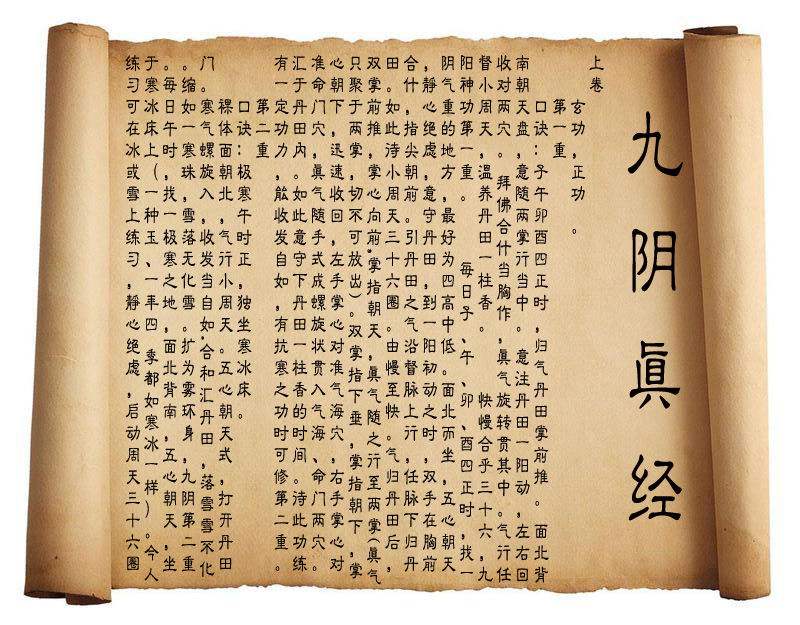 九阴眞经
上卷
玄功，正功。
第一重
口诀：子午卯酉四正时，归气丹田掌前推。面北背
南朝天盘，意随两掌行当中。意注丹田一阳动，左右回
收对两穴。拜佛合什当胸作，眞气旋转贯其中。气行任
督小周天，温养丹田一柱香。快慢合乎三十六，九
阳神功第一重。每日子、午、卯、酉四正时，找一
阴气重的地方，最好为四高中低。面北而坐，五心朝天
，静心绝虑，意守丹田，到一阳初动之时，双手在胸前
合什，指尖朝前。引丹田之气沿督脉上行，任脉下归丹
田。如此待小周天三十六圈。由慢至快。气归丹田后，
双掌前推，掌心向前，掌指朝天，眞气随之行至两掌（眞气
只聚于两掌，切不可放出）。双掌指下垂，掌指朝下，掌
心朝下，迅速收回，左手掌心对准气海穴，右手掌心对
准命门穴，眞气随手式成螺旋状贯入气海、命门两穴。
汇于丹田内。如此意守下丹田一柱香的时间。待此功练
有一定功力，能收发自如，有抗寒之功时可修第二重。
第二重
口诀：极寒午时正，独坐寒冰床。
裸体面朝北，气行小周天。五心朝天式，打开丹田
门。寒气螺旋入，收发当自如，合和汇丹田，落雪雪不化
。缩如一寒珠，雪落无化雪。扩为雾环身，九阴第二重
。每日午时，找一极寒之地，面北背南，五心朝天，坐
于寒冰床上（一种玉、一年四季都如寒冰一样）。今人
练习可在冰或雪上练习，静心绝虑，启动周天三十六圈